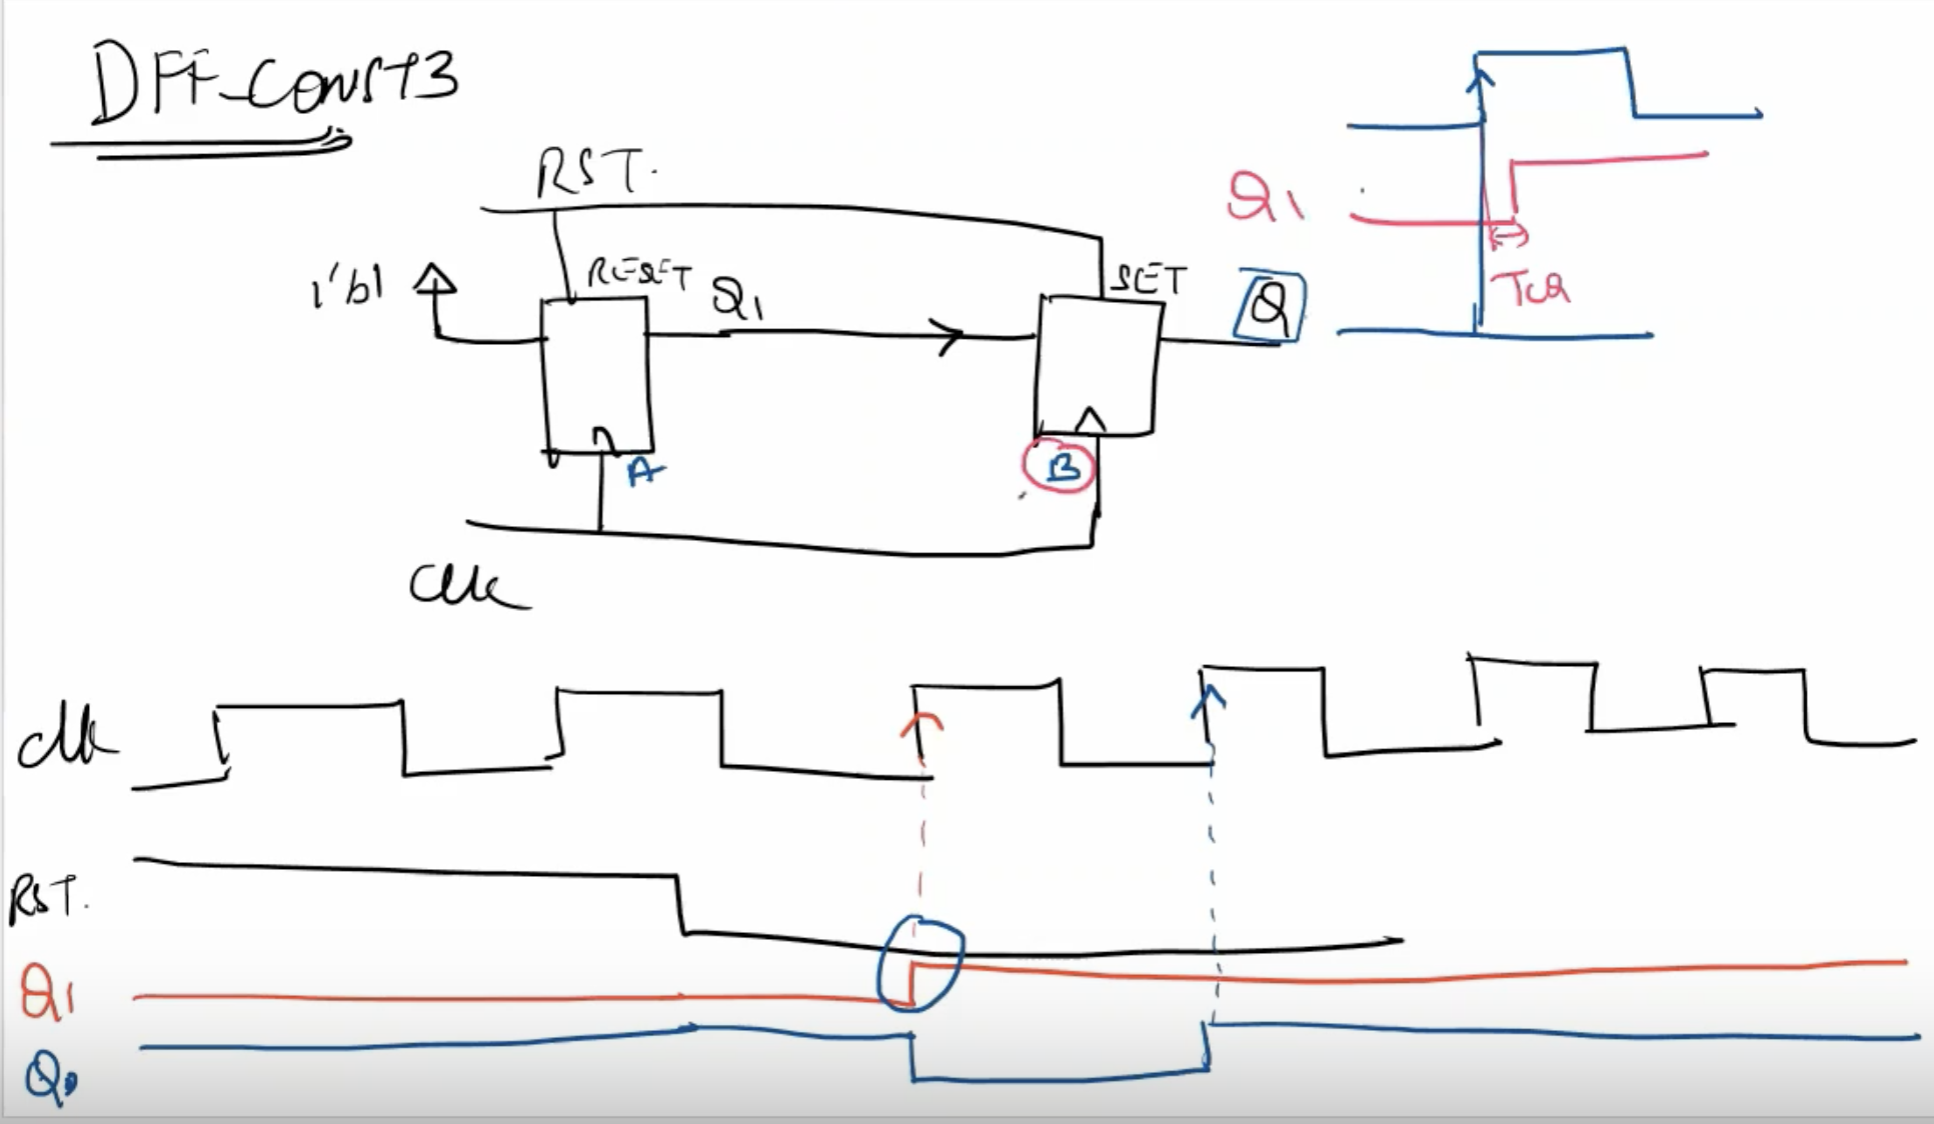 DFF_CONST3
RST.
1'b1
RESET
Q1
SET
Q
A
B
Clk
Q1
TCQ
clk
RST.
Q1
Q